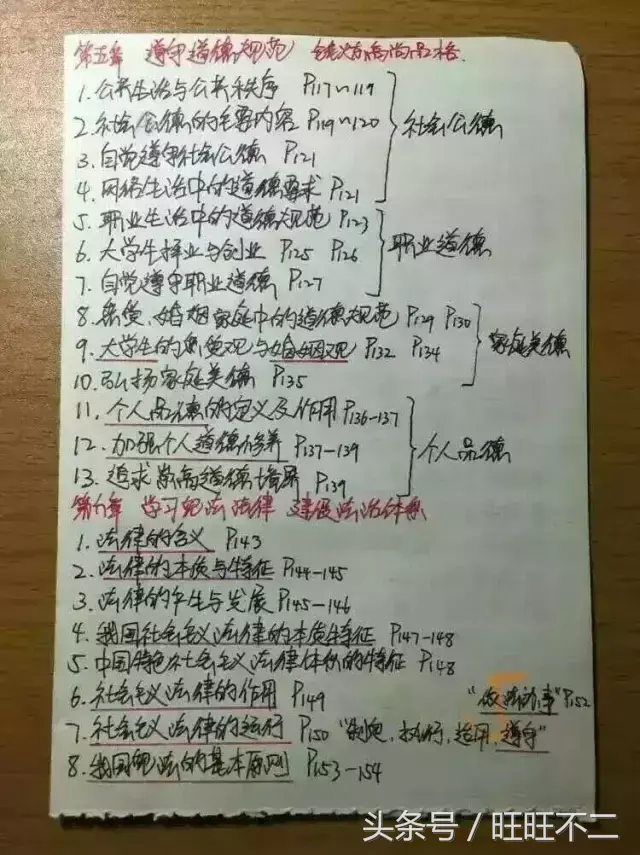 第五章 遵守道德规范 锤炼高尚品格.
1. 公共生活与公共秩序 P117~119
2. 社会公德的主要内容 P119~120
3. 自觉遵守社会公德 P121
4. 网络生活中的道德要求 P121
社会公德
5. 职业生活中的道德规范 P123
6. 大学生择业与创业 P125 P126
7. 自觉遵守职业道德 P127
职业道德
8. 恋爱、婚姻家庭中的道德规范 P129 P130
9. 大学生的恋爱观与婚姻观 P132 P134
10. 弘扬家庭美德 P135
家庭美德
11. 个人品德的定义及作用 P136-137
12. 加强个人道德修养 P137-139
13. 追求崇高道德境界 P139
个人品德
第六章 学习宪法法律 建设法治体系
1. 法律的含义 P143
2. 法律的本质与特征 P144-145
3. 法律的产生与发展 P145-146
4. 我国社会主义法律的本质特征 P147-148
5. 中国特色社会主义法律体系的特征 P148
6. 社会主义法律的作用 P149 "依法办事" P152
7. 社会主义法律的运行 P150 "制定, 执行, 适用, 遵守"
8. 我国宪法的基本原则 P153-154
头条号 / 旺旺不二